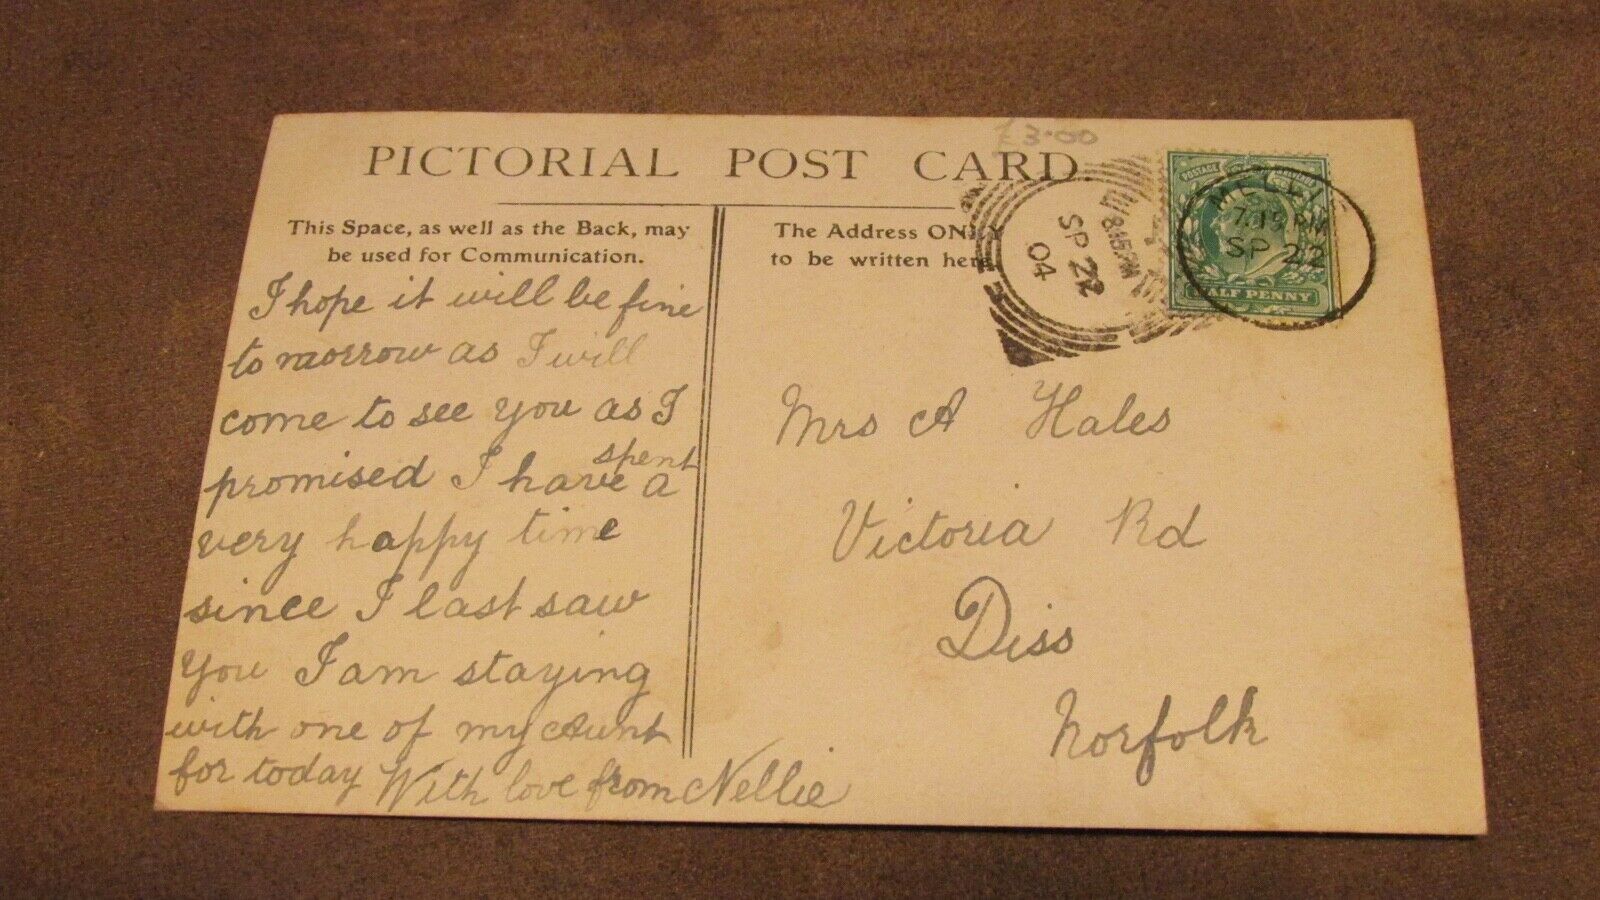 £3.00
PICTORIAL POST CARD.
This Space, as well as the Back, may
be used for Communication.
The Address ONLY
to be written here.
8.15PM
SP 22
04
7.15 PM
SP 22
POSTAGE
HALF PENNY
I hope it will be fine
to morrow as I will
come to see you as I
promised I have spent a
very happy time
since I last saw
you I am staying
with one of my Aunt
for today With love from Nellie
Mrs A Hales
Victoria Rd
Diss
Norfolk